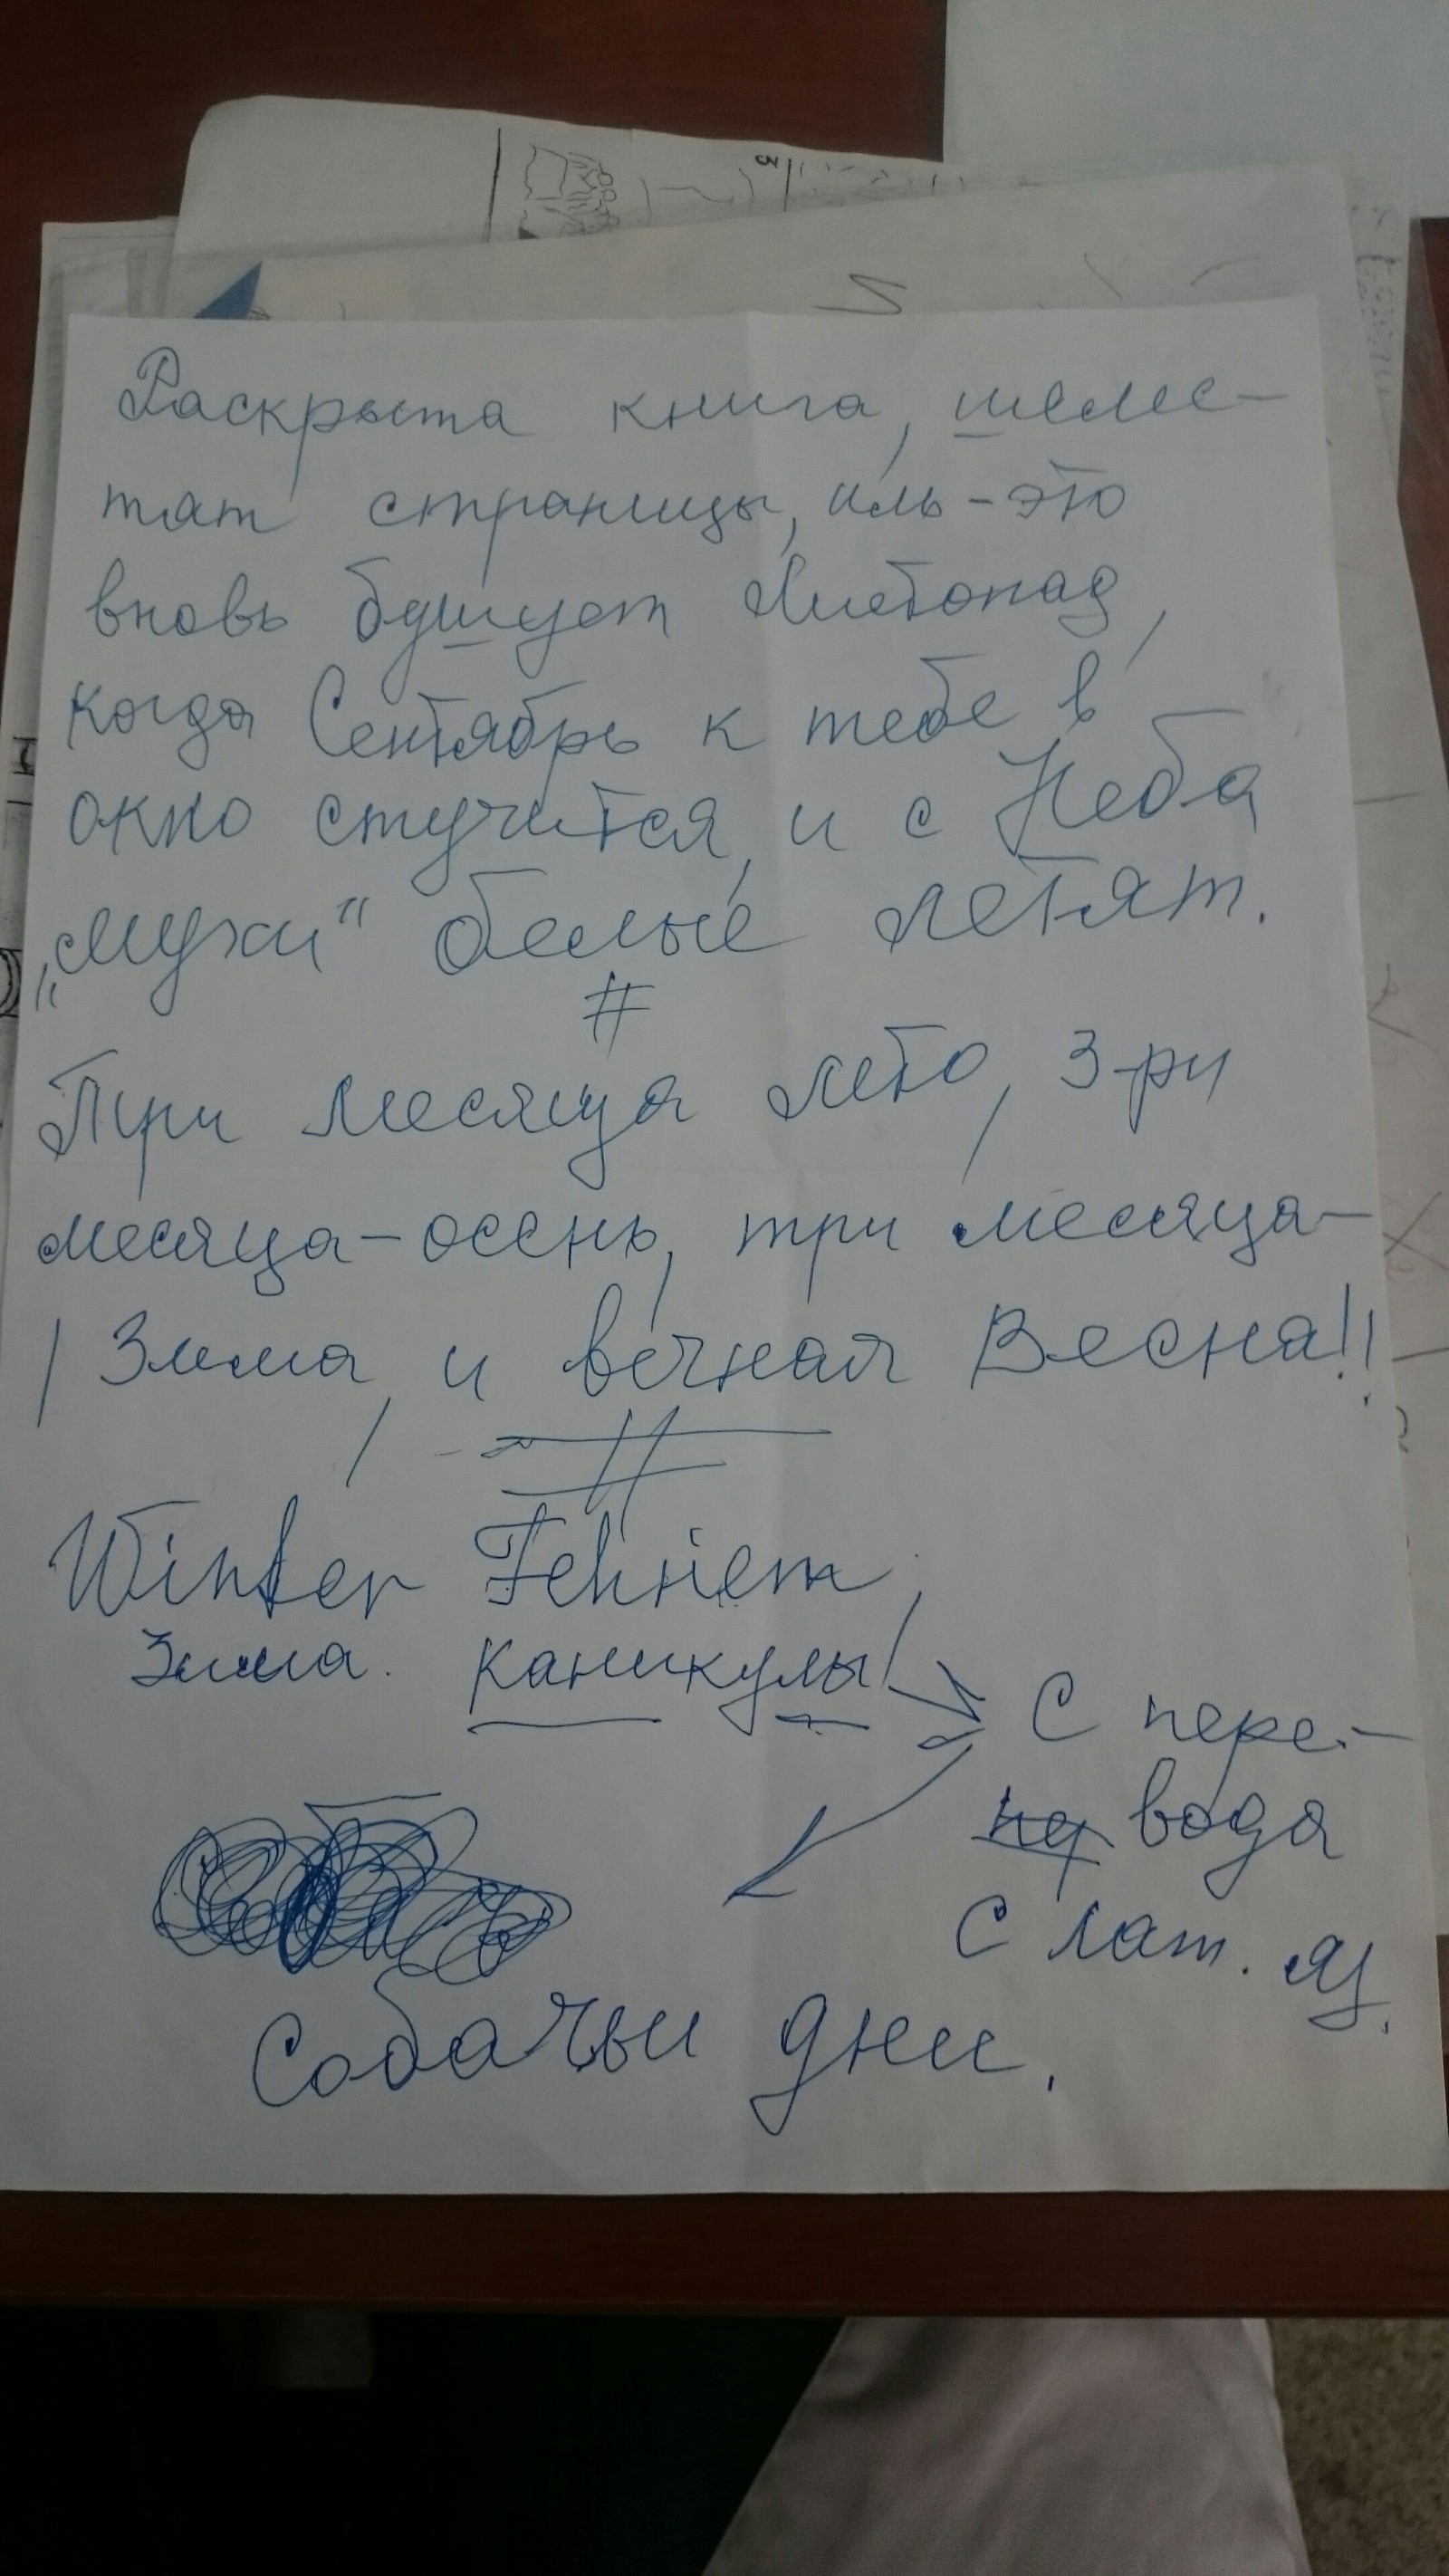 Раскрыта книга, шелес-
тят страницы, иль - это
вновь бушует Листопад,
когда Сентябрь к тебе в
окно стучится, и с Неба
„мухи“ белые летят.
#
Три месяца лето, 3-ри
месяца - осень, три месяца -
Зима, и вечная Весна!!
#
Winter
Зима. каникулы!
С пере-
вода
С лат. яз.
Собачьи дни.